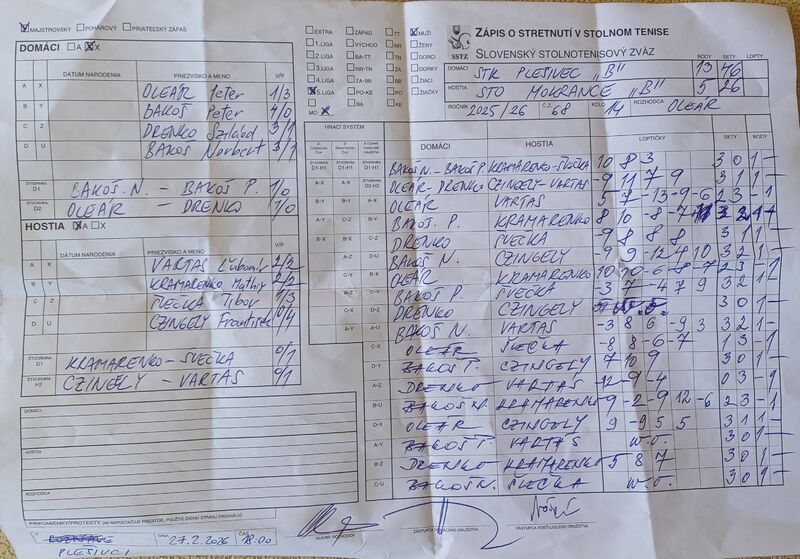 MAJSTROVSKÝ POHÁROVÝ PRIATEĽSKÝ ZÁPAS
DOMÁCI A X
DÁTUM NARODENIA PRIEZVISKO A MENO V/P
A X OLEÁR Peter 1/3
B Y BAKOŠ Peter 4/0
C Z DRENKO Szilárd 3/1
D U BAKOŠ Norbert 3/1
ŠTVORHRA D1 BAKOŠ N. – BAKOŠ P. 1/0
ŠTVORHRA D2 OLEÁR – DRENKO 1/0
HOSTIA A X
DÁTUM NARODENIA PRIEZVISKO A MENO V/P
A X VARTAS Ľubomír 2/2
B Y KRAMARENKO 2/2
C Z ŠVEČKA Tibor 1/3
D U CZINGELY František 0/4
ŠTVORHRA KRAMARENKO – ŠVEČKA 0/1
ŠTVORHRA H2 CZINGELY – VARTAS 0/1
DOMÁCI
HOSTIA
ROZHODCA
PRIPOMIENKY/PROTESTY (AK NEPOSTAČUJE PRIESTOR, POUŽITE ZADNÚ STRANU ORIGINÁLU)
PLEŠIVCI
27.2.2026 18:00
HLAVNÝ ROZHODCA
ZÁSTUPCA DOMÁCEHO DRUŽSTVA
ZÁSTUPCA HOSŤUJÚCEHO DRUŽSTVA
EXTRA ZÁPAD TT MUŽI
1.LIGA VÝCHOD NR ŽENY
2.LIGA BA-TT TN DORCI
3.LIGA NR-TN ZA DORKY
4.LIGA ZA-BB BB ŽIACI
5.LIGA PO-KE PO ŽIAČKY
MO BA KE
SSTZ
ZÁPIS O STRETNUTÍ V STOLNOM TENISE
SLOVENSKÝ STOLNOTENISOVÝ ZVÄZ
BODY SETY LOPTY
DOMÁCI STK PLEŠIVEC „B" 13 46
HOSTIA STO MOKRANCE „B" 5 26
ROČNÍK 2025/26 Č.Z. 68 KOLO 14 ROZHODCA OLEÁR
HRACÍ SYSTÉM
DOMÁCI HOSTIA LOPTIČKY SETY BODY
BAKOŠ N. – BAKOŠ P. KRAMARENKO – ŠVEČKA 10 8 3 3 0 1 –
OLEÁR – DRENKO CZINGELY – VARTAS –9 11 7 9 3 1 1 –
OLEÁR VARTAS 5 7 –13 –9 –6 2 3 – 1
BAKOŠ P. KRAMARENKO 8 10 –8 –7
DRENKO ŠVEČKA –9 8 8 8 3 1 1 –
BAKOŠ N. CZINGELY –9 9 –12 4 10 3 2 1 –
OLEÁR KRAMARENKO 10 10 –6 –8 –7 2 3 – 1
BAKOŠ P. ŠVEČKA –3 7 –4 7 9 3 2 1 –
DRENKO CZINGELY 3 0 1 –
BAKOŠ N. VARTAS –3 8 6 –9 3 3 2 1 –
OLEÁR ŠVEČKA –8 8 –6 –7 1 3 – 1
BAKOŠ P. CZINGELY 7 10 9 3 0 1 –
DRENKO VARTAS –12 –9 –4 0 3 – 1
BAKOŠ N. KRAMARENKO –9 –2 –9 12 –6 2 3 – 1
OLEÁR CZINGELY 9 –9 5 5 3 1 1 –
BAKOŠ P. VARTAS w.o. 3 0 1 –
DRENKO KRAMARENKO 5 8 7 3 0 1 –
BAKOŠ N. ŠVEČKA w.o. 3 0 1 –